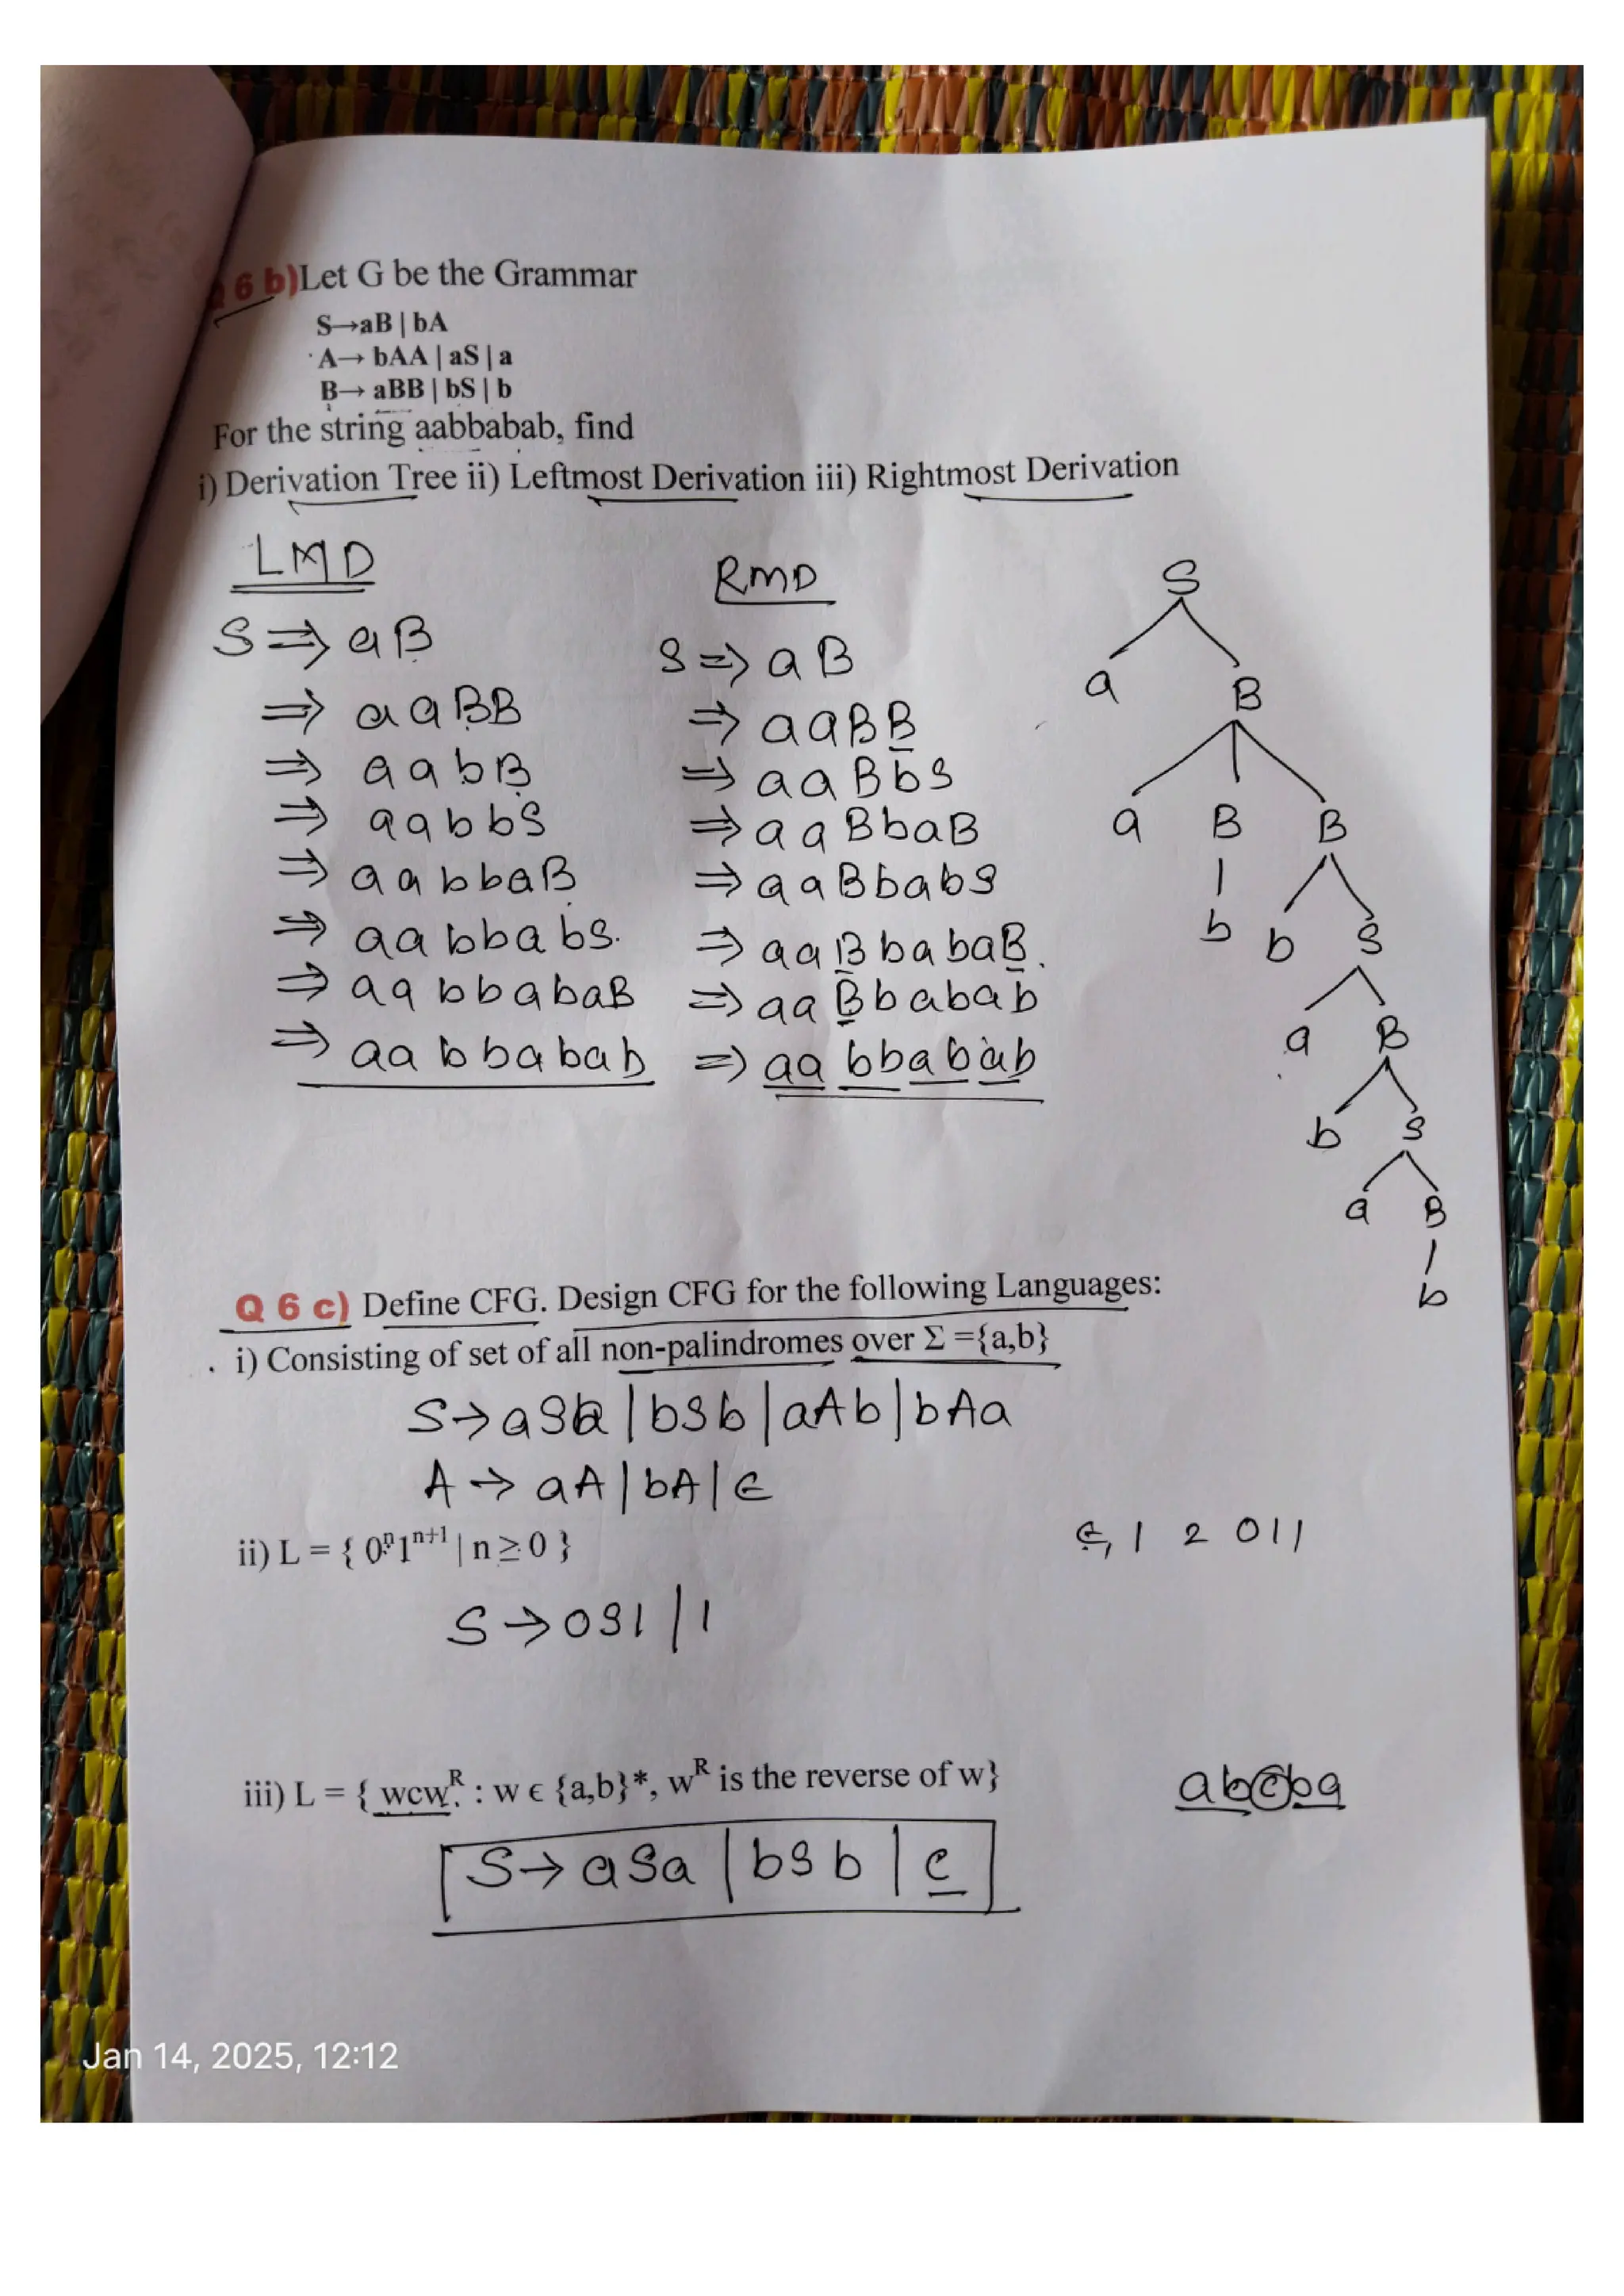 6 b)Let G be the Grammar
S→aB | bA
A→ bAA | aS | a
B→ aBB | bS | b
For the string aabbabab, find
i) Derivation Tree ii) Leftmost Derivation iii) Rightmost Derivation
LMD
S ⇒ aB
⇒ aaBB
⇒ aabB
⇒ aabbS
⇒ aabbaB
⇒ aabbabS.
⇒ aabbabaB
⇒ aabbabab
RMD
S ⇒ aB
⇒ aaBB
⇒ aaBbS
⇒ aaBbaB
⇒ aaBbabS
⇒ aaBbabaB.
⇒ aaBbabab
⇒ aabbabab
S
a B
a B B
b b S
a B
b S
a B
b
Q 6 c) Define CFG. Design CFG for the following Languages:
i) Consisting of set of all non-palindromes over Σ ={a,b}
S→aSa | bSb | aAb | bAa
A → aA | bA | ∈
ii) L = { 0ⁿ1ⁿ⁺¹ | n ≥ 0 }
∈, 1 2 011
S → 0S1 | 1
iii) L = { wcwᴿ : w ϵ {a,b}*, wᴿ is the reverse of w}
abcba
S→ aSa | bSb | c
Jan 14, 2025, 12:12